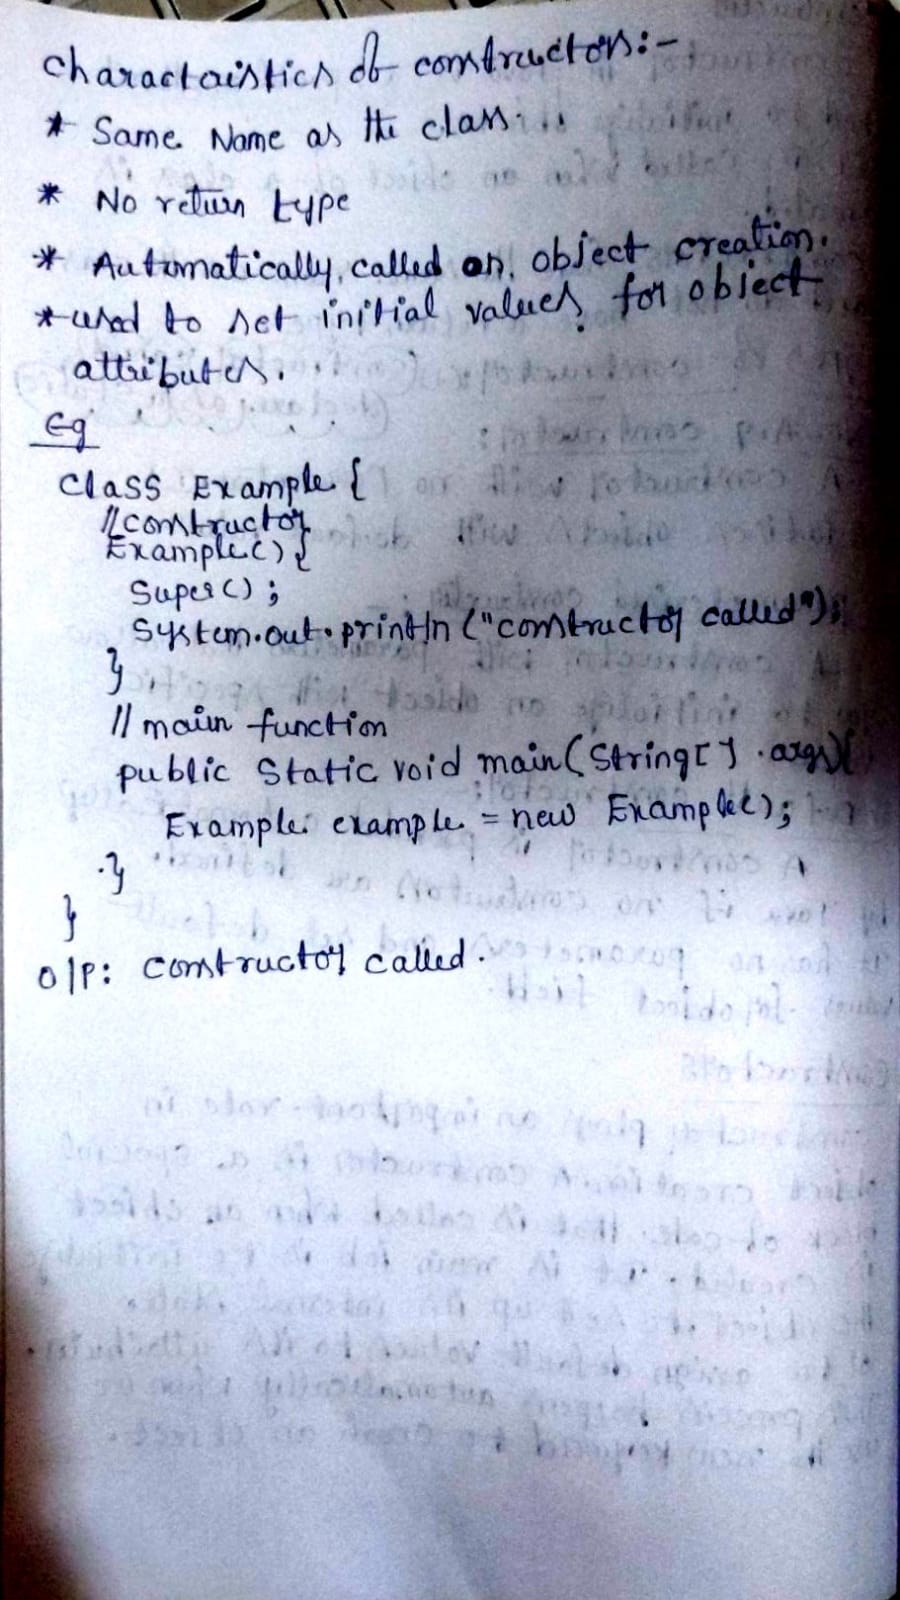 Characteristics of constructors:-
* Same Name as the class.
* No return type
* Automatically called on object creation.
* used to set initial values for object
attributes.
Eg
Class Example {
// constructor
Example() {
Super();
System.out.println ("constructor called");
}
// main function
public Static void main(String[] args){
Example example = new Example();
}
}
O/P: constructor called.